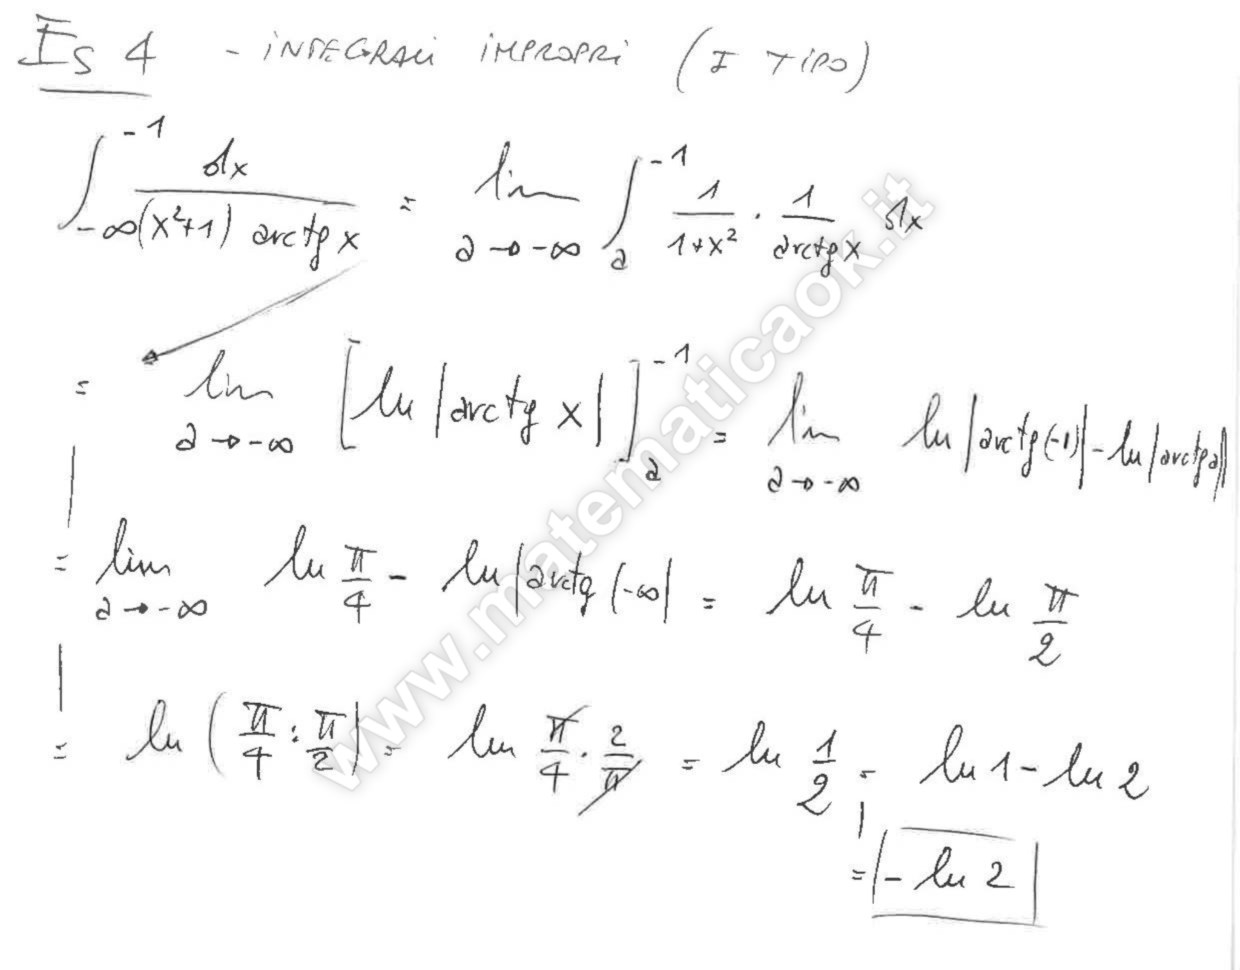 Es 4 - INTEGRALI IMPROPRI (I TIPO)
∫_{-∞}^{-1} dx / ((x²+1) arctg x) = lim_{a→-∞} ∫_a^{-1} 1/(1+x²) · 1/(arctg x) dx
= lim_{a→-∞} [ln |arctg x|]_a^{-1} = lim_{a→-∞} ln |arctg(-1)| - ln |arctg a|
= lim_{a→-∞} ln π/4 - ln |arctg (-∞| = ln π/4 - ln π/2
= ln (π/4 : π/2) = ln π/4 · 2/π = ln 1/2 = ln 1 - ln 2
= - ln 2
www.matematicaok.it